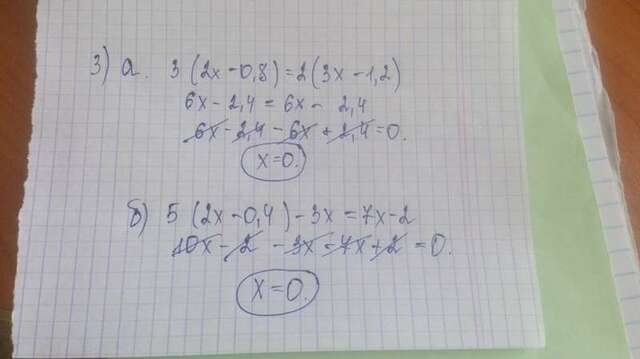 3) а. 3 (2x - 0,8) = 2 (3x - 1,2)
6x - 2,4 = 6x - 2,4
6x - 2,4 - 6x + 2,4 = 0.
x = 0.
б) 5 (2x - 0,4) - 3x = 7x - 2
10x - 2 - 3x - 7x + 2 = 0.
x = 0.